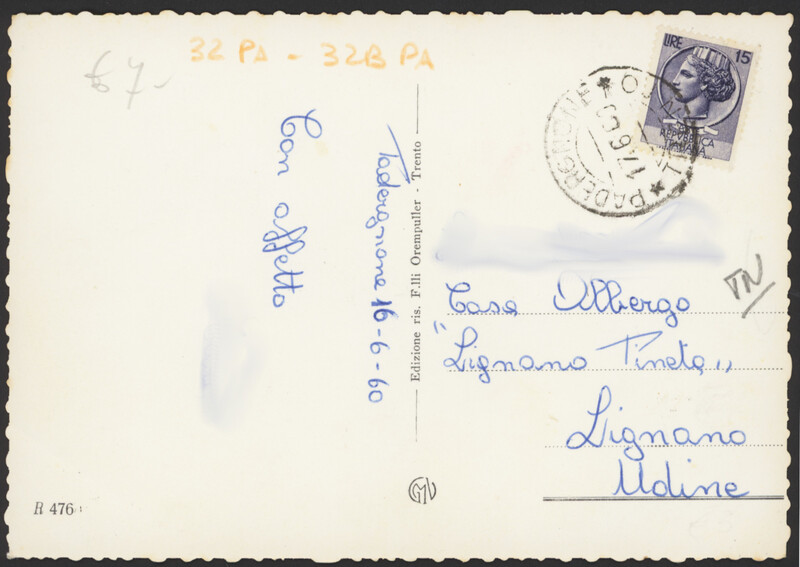 € 7-
32 PA - 32B PA
Con affetto
Padergnone 16-6-60
Edizione ris. F.lli Orempuller - Trento
LIRE 15
REPUBBLICA
ITALIANA
* PADERGNONE *
17 6 60
TN
Casa Albergo
"Lignano Pineta,,
Lignano
Udine
R 476